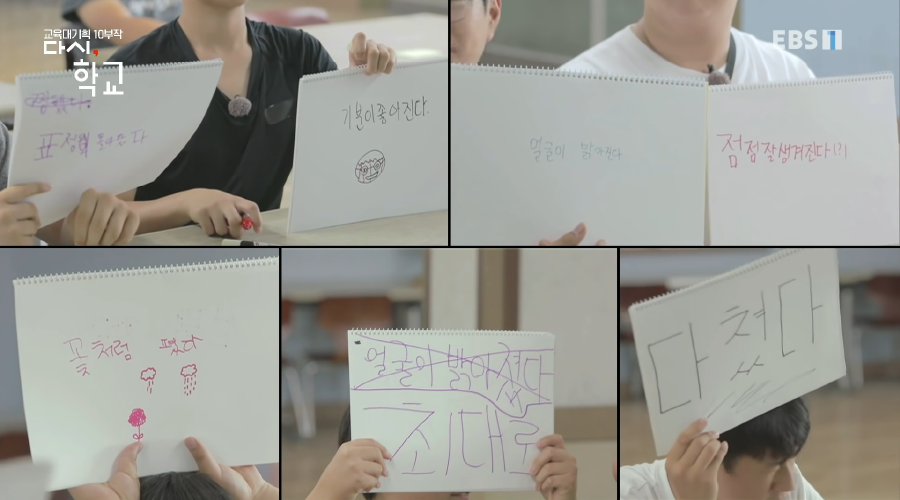 교육대기획 10부작
다시,
학교
EBS 1
표정이 돌아오다
기분이좋아진다.
얼굴이 밝아진다
점점잘생겨진다(?)
꽃처럼 폈다
얼굴이 밝아졌다
초대로
다쳤다